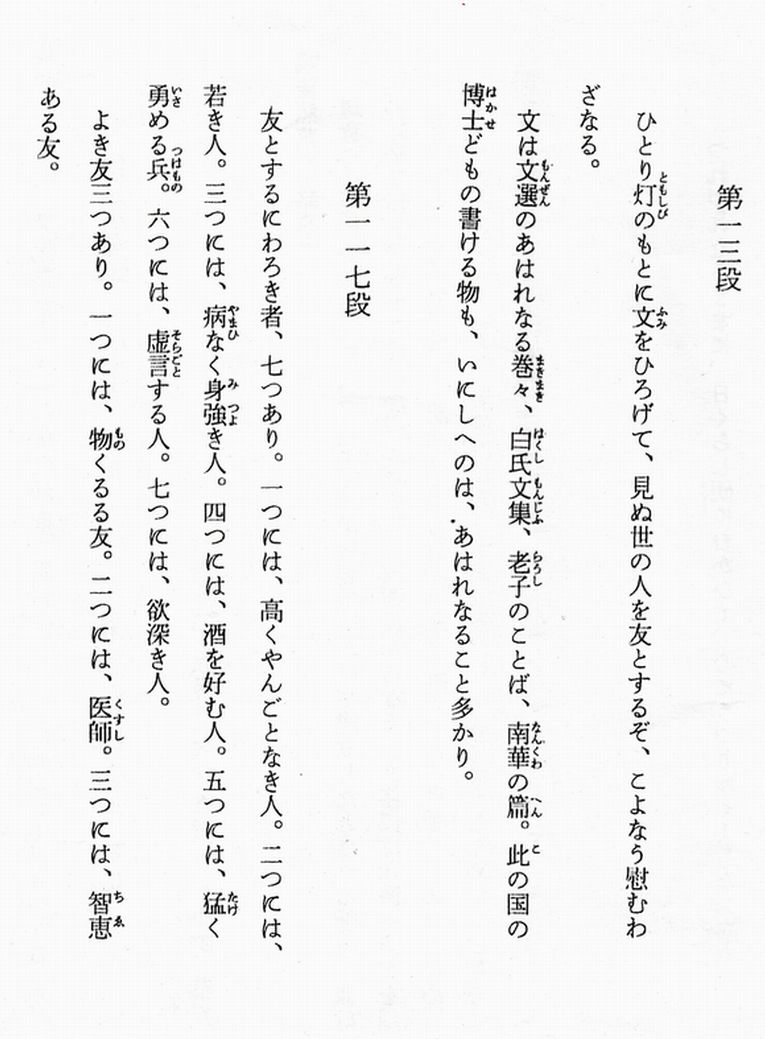 第一三段
ひとり灯のもとに文をひろげて、見ぬ世の人を友とするぞ、こよなう慰むわ
ざなる。
文は文選のあはれなる巻々、白氏文集、老子のことば、南華の篇。此の国の
博士どもの書ける物も、いにしへのは、あはれなること多かり。
第一一七段
友とするにわろき者、七つあり。一つには、高くやんごとなき人。二つには、
若き人。三つには、病なく身強き人。四つには、酒を好む人。五つには、猛く
勇める兵。六つには、虚言する人。七つには、欲深き人。
よき友三つあり。一つには、物くるる友。二つには、医師。三つには、智恵
ある友。